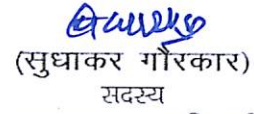 (सुधाकर गौरकार)
सदस्य